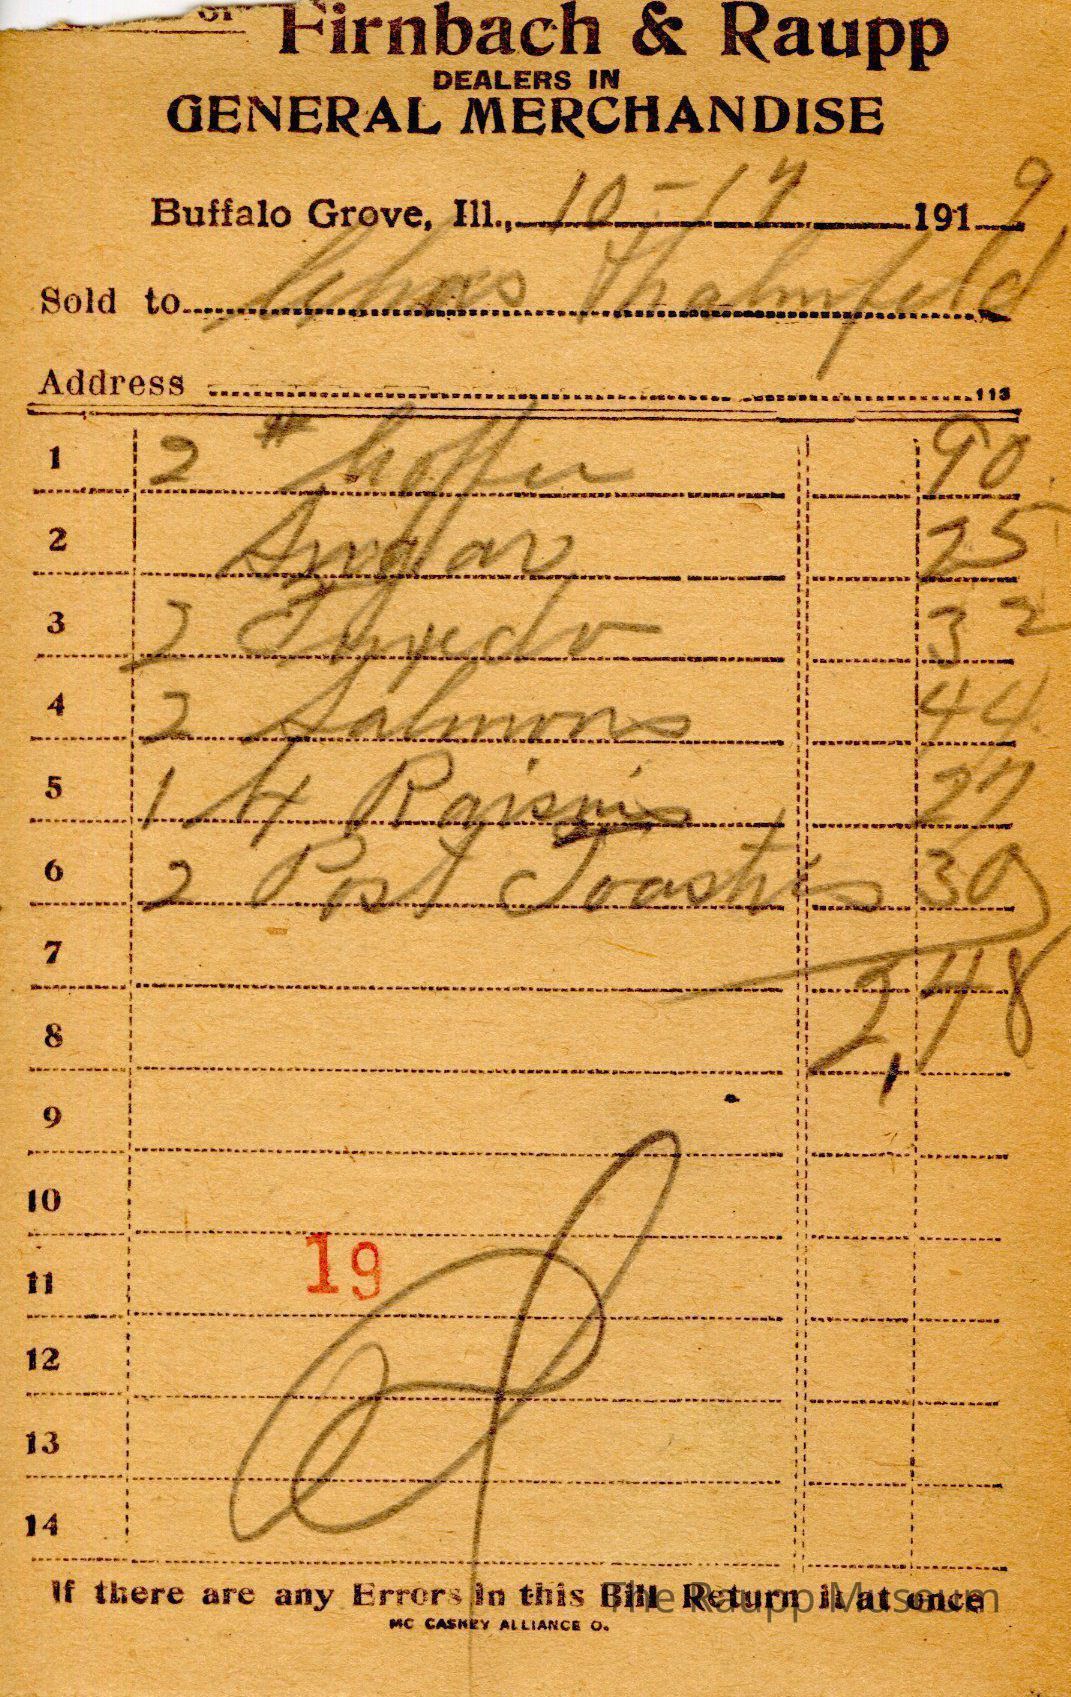 Firnbach & Raupp
DEALERS IN
GENERAL MERCHANDISE
Buffalo Grove, Ill., 10-17 1919
Sold to Chas Thalmfeld
Address 113
1 2 # Coffee 90
2 Sugar 25
3 2 Tuxedo 32
4 2 Salmons 44
5 1 # Raisins 27
6 2 Post Toasties 30
7 2,48
8
9
10
19
11
12
13
14
If there are any Errors in this Bill Return it at once
MC CASKEY ALLIANCE O.
The Raupp Museum